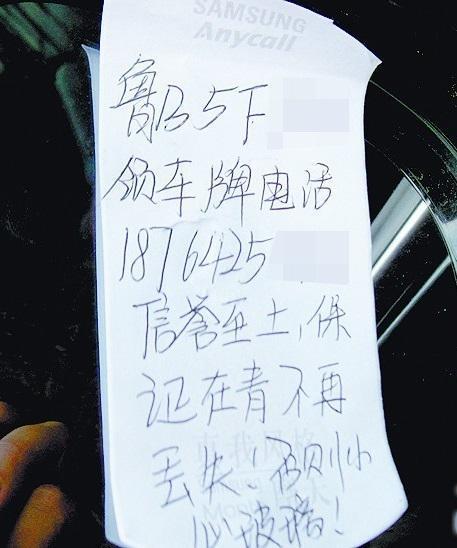 SAMSUNG
Anycall
鲁B5下
领车牌电话
1876425
信誉至上,保
证在青不再
丢失!否则小
心玻璃!